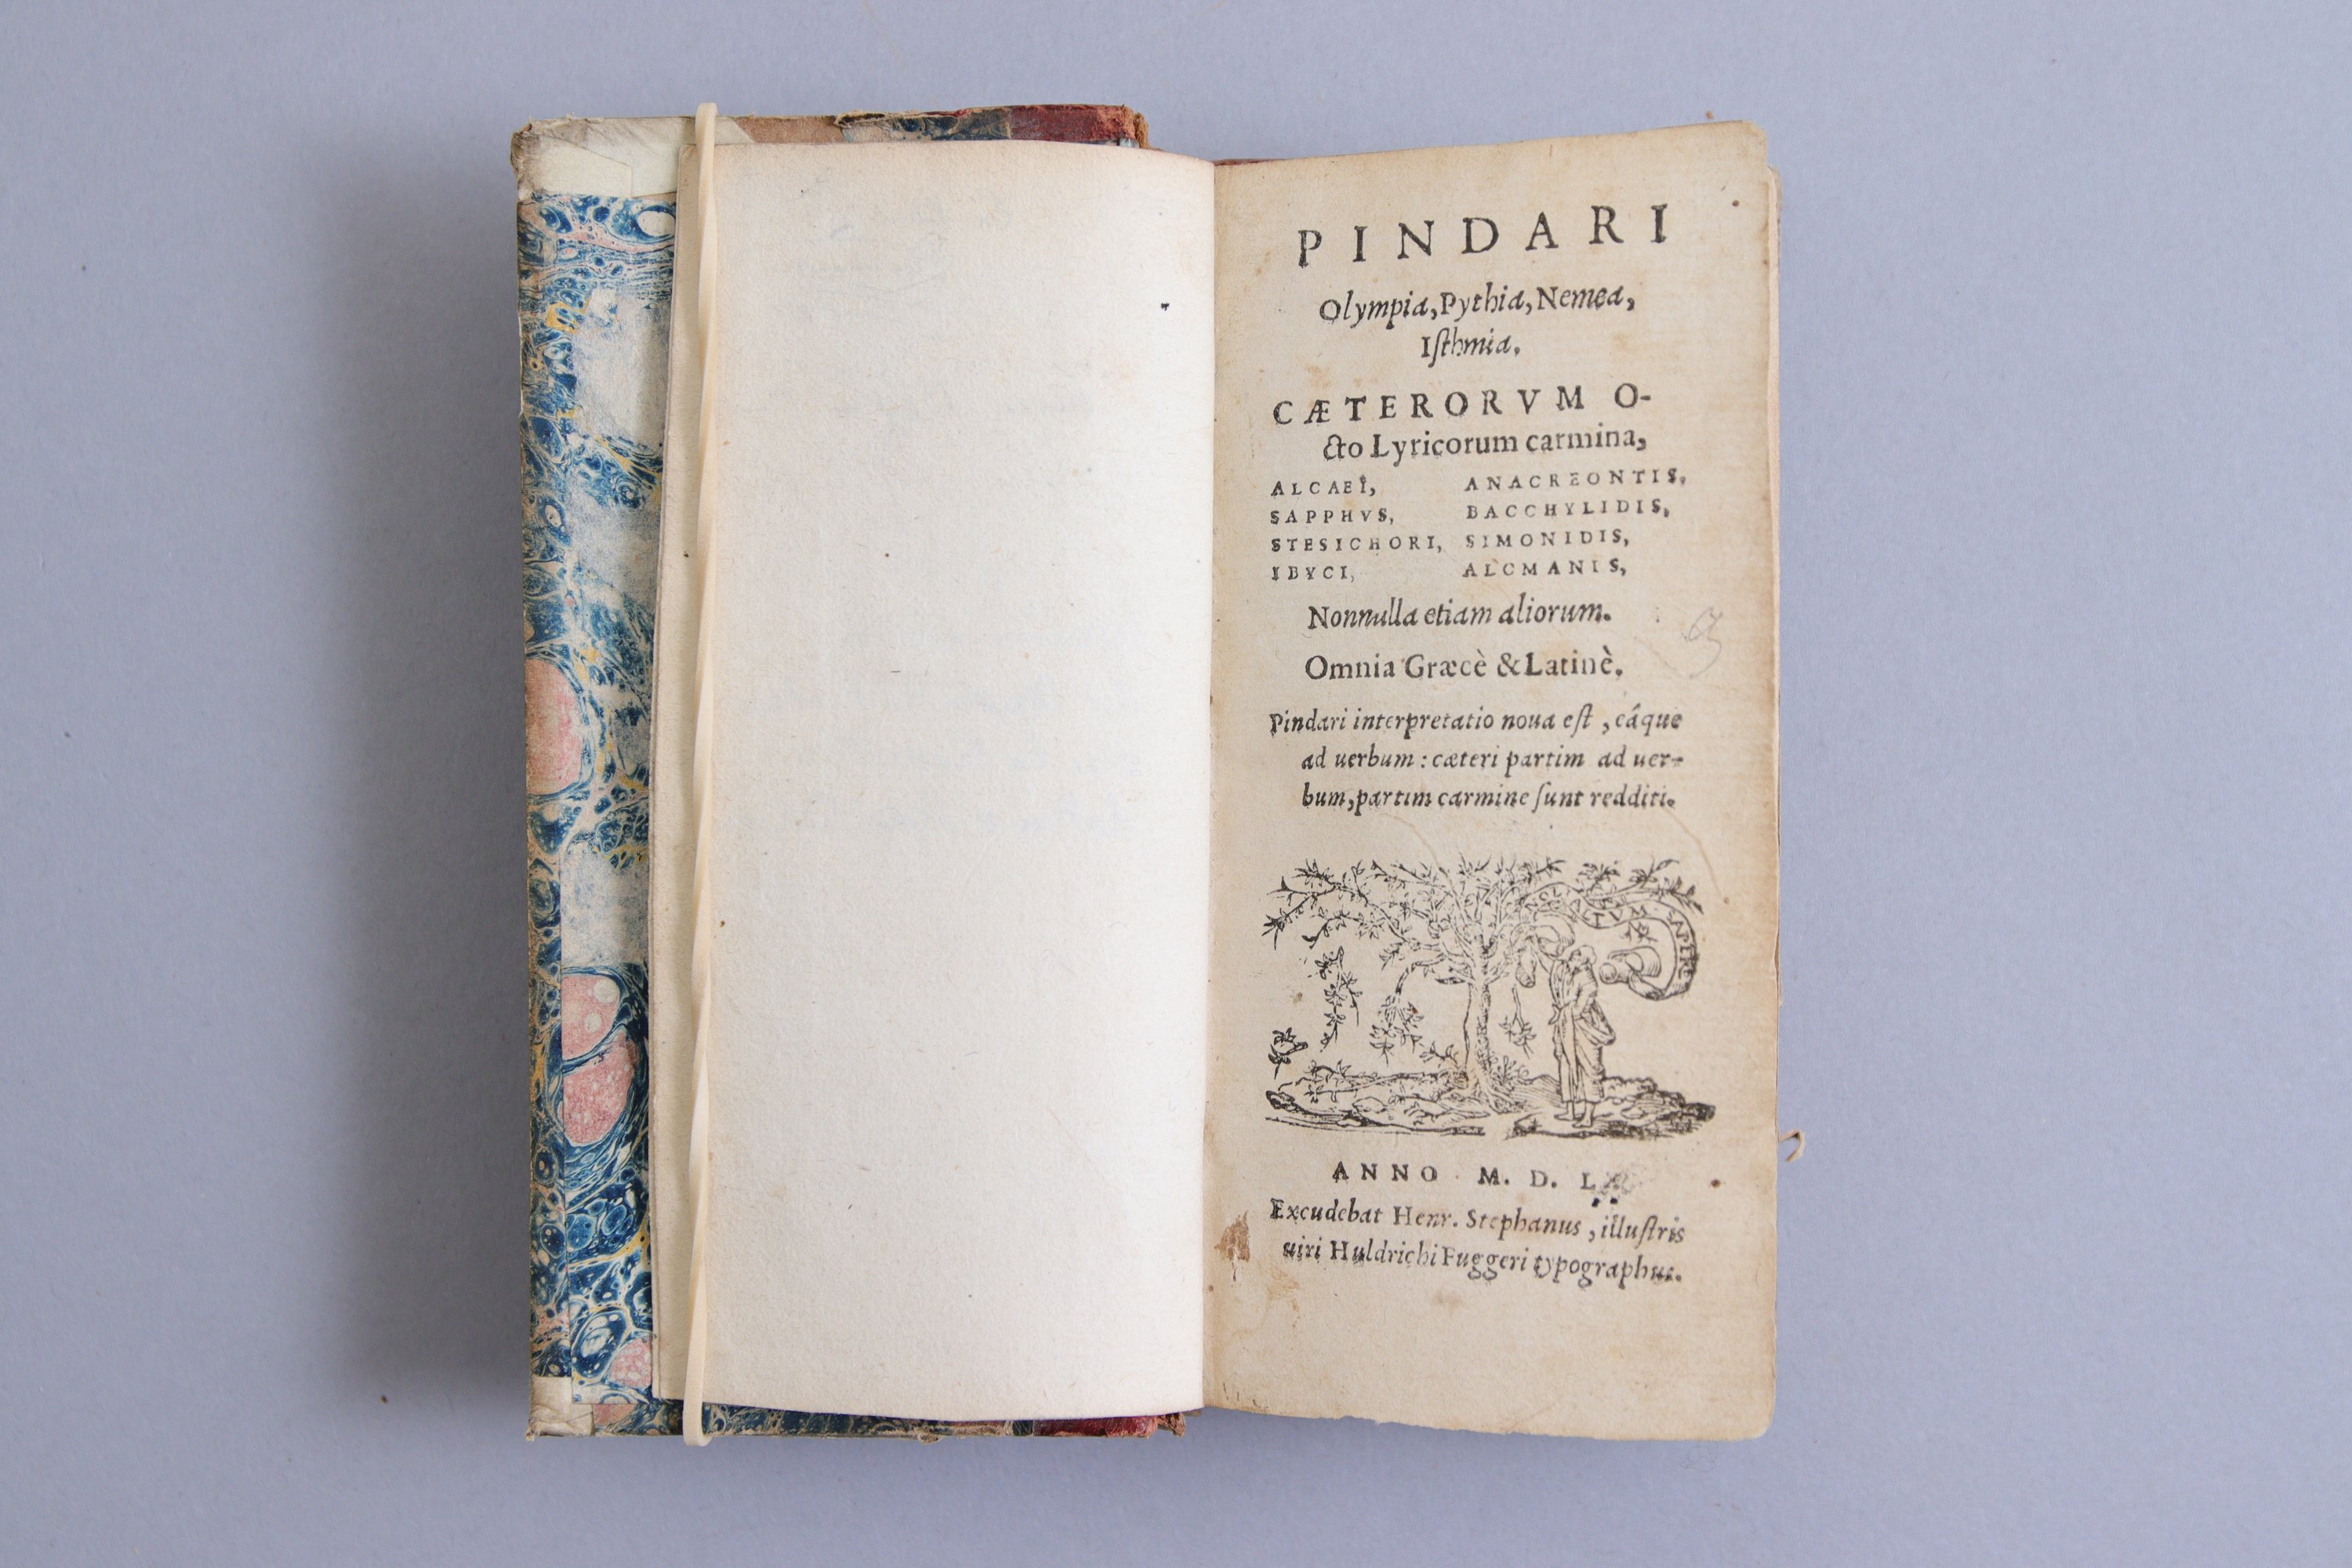 PINDARI
Olympia, Pythia, Nemea,
Iſthmia.
CÆTERORVM O-
cto Lyricorum carmina,
ALCAEI, ANACREONTIS,
SAPPHVS, BACCHYLIDIS,
STESICHORI, SIMONIDIS,
IBYCI, ALCMANIS,
Nonnulla etiam aliorum.
Omnia Græcè & Latinè.
Pindari interpretatio noua eſt, eáque
ad uerbum: cæteri partim ad uer-
bum, partim carmine ſunt redditi.
TVM SAPERE
ANNO M. D. L
Excudebat Henr. Stephanus, illuſtris
uiri Huldrichi Fuggeri typographus.